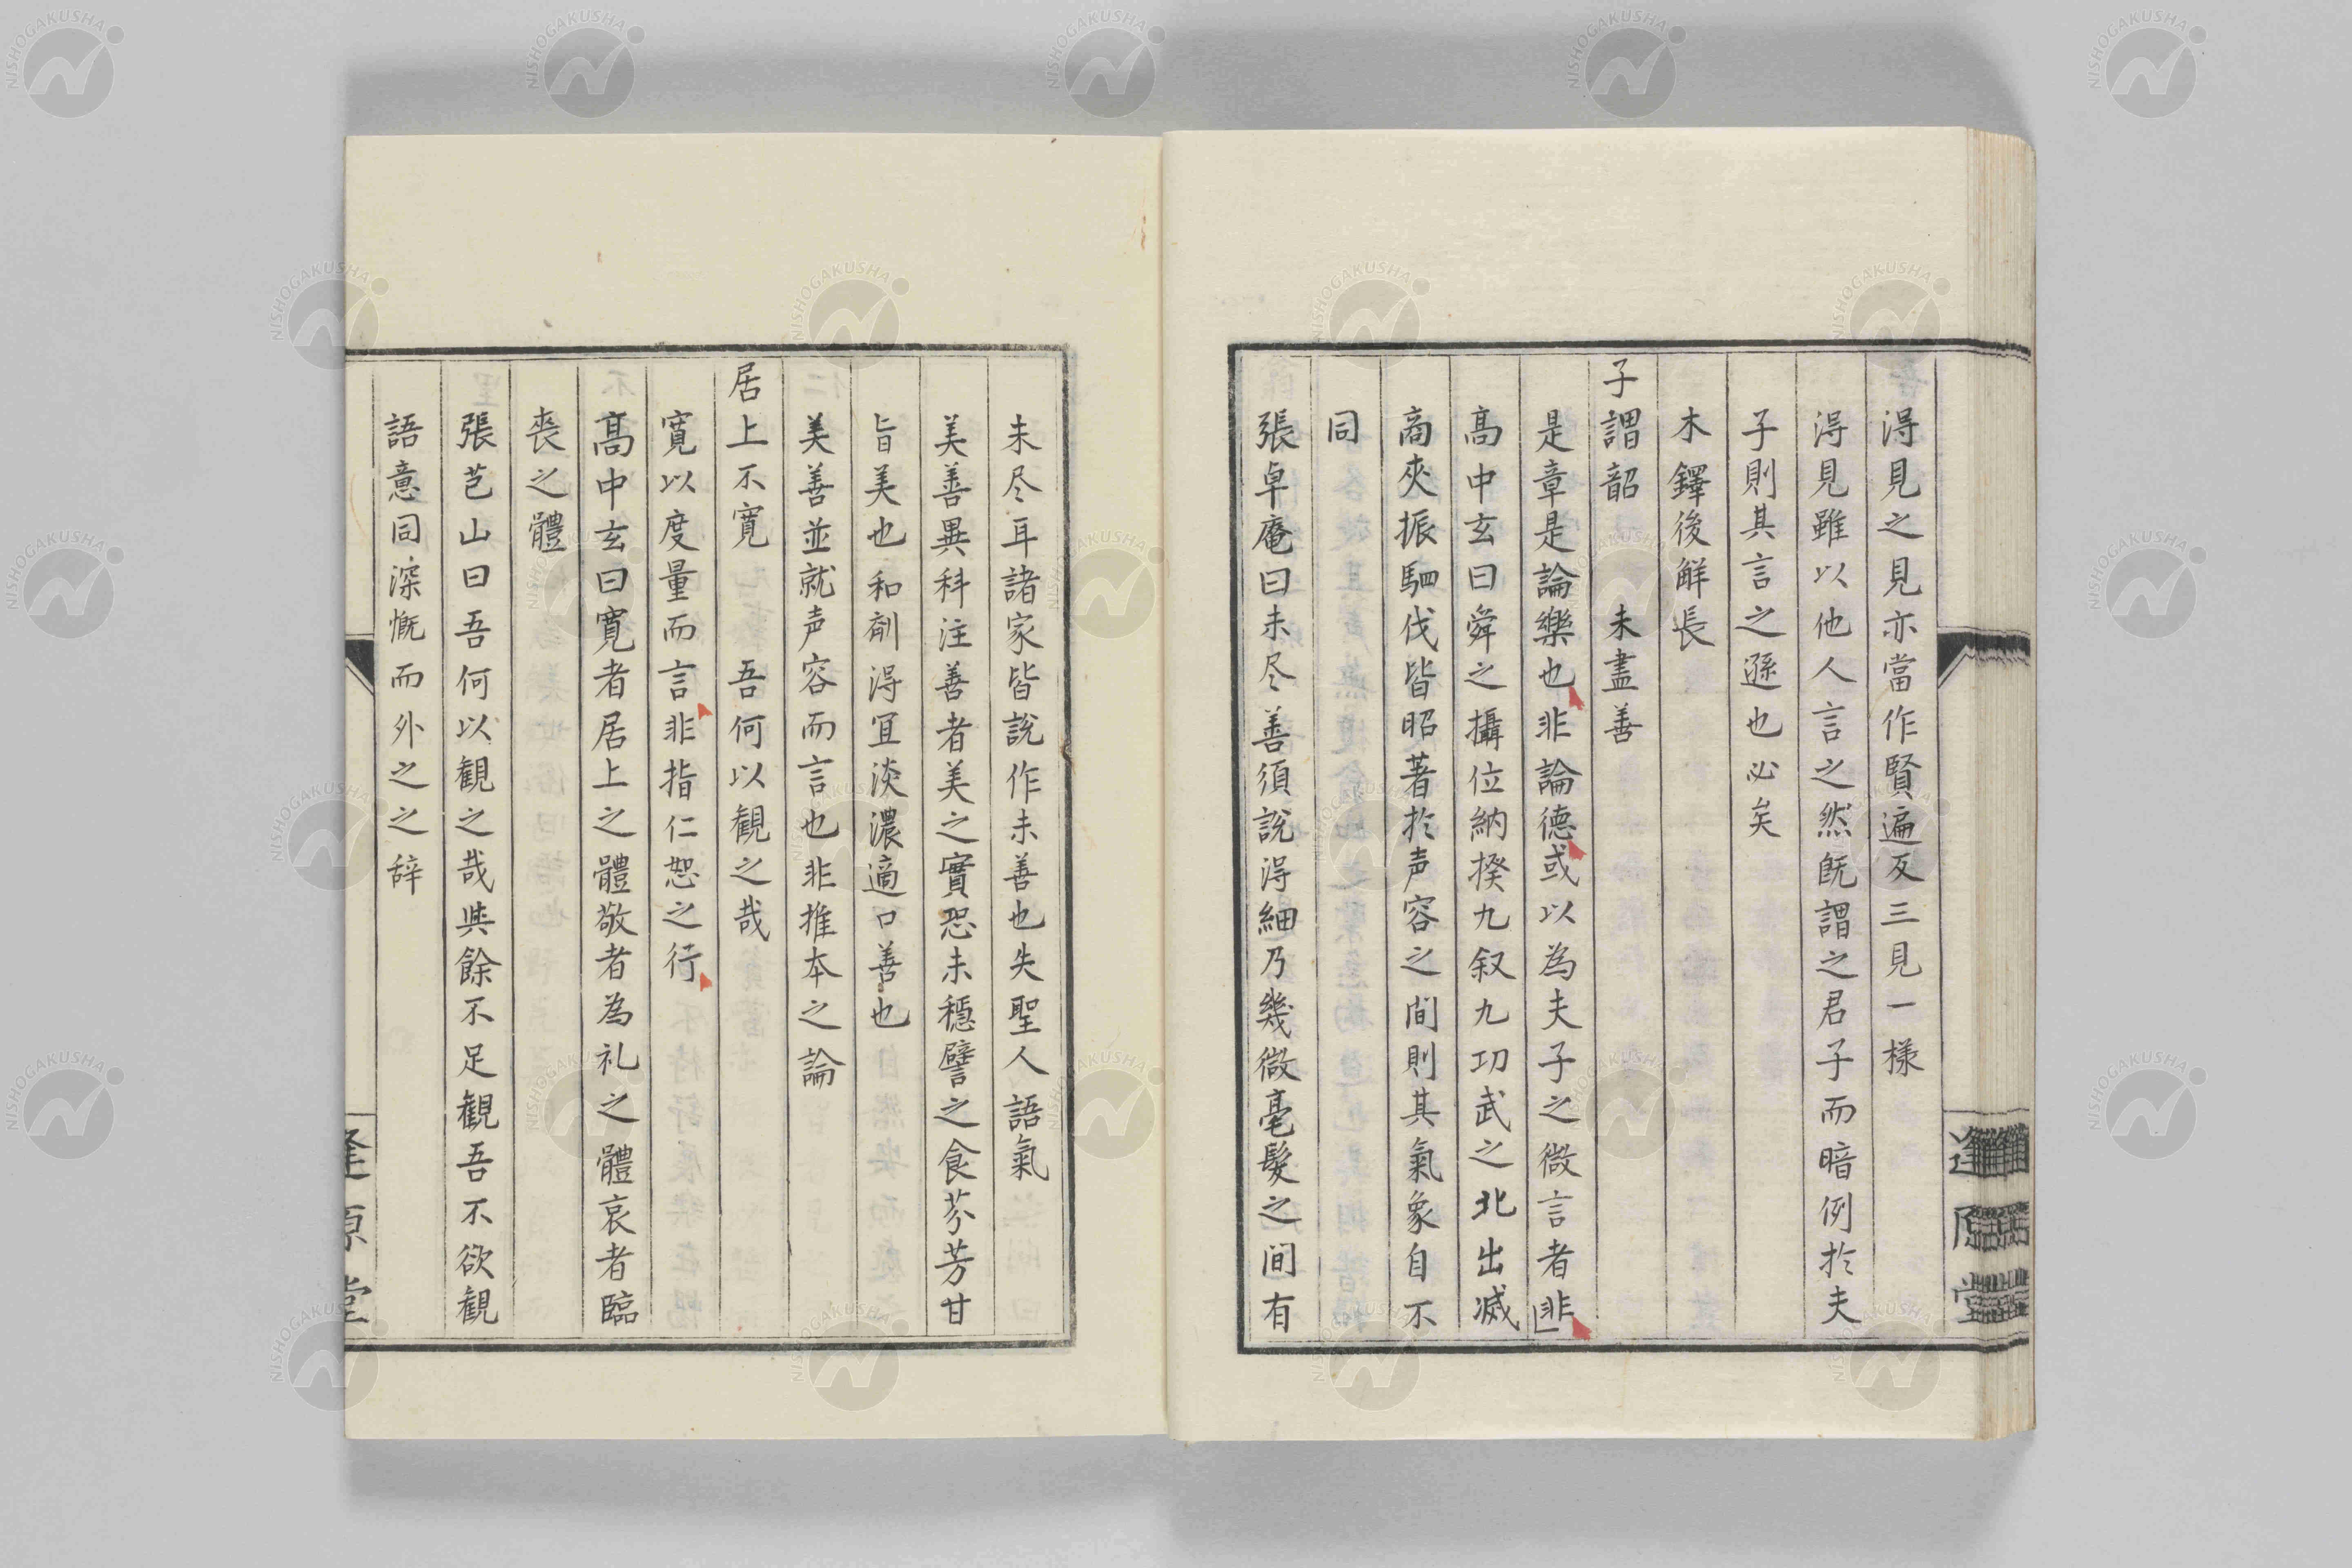 得見之見亦當作賢遍反三見一樣
得見雖以他人言之然既謂之君子而暗例於夫
子則其言之遜也必矣
木鐸後解長
子謂韶　　未盡善
是章是論樂也非論德或以為夫子之微言者非
高中玄曰舜之攝位納揆九叙九功武之北出滅
商夾振駟伐皆昭著於声容之間則其氣象自不
同
張卓庵曰未尽善須説得細乃幾微毫髮之间有
未尽耳諸家皆説作未善也失聖人語氣
美善異科注善者美之實恐未穩譬之食芬芳甘
旨美也和劑得宜淡濃適口善也
美善並就声容而言也非推本之論
居上不寛　　吾何以観之哉
寛以度量而言非指仁恕之行
高中玄曰寛者居上之體敬者為礼之體哀者臨
喪之體
張芑山曰吾何以観之哉與餘不足観吾不欲観
語意同深慨而外之之辞
逢原堂
逢原堂
NISHOGAKUSHA